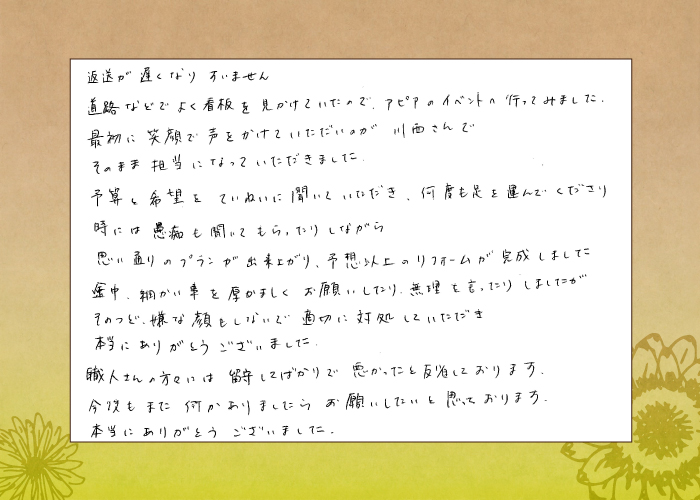 返送が遅くなり すいません
道路などでよく看板を見かけていたので、アピアのイベントへ行ってみました.
最初に笑顔で声をかけていただいのが 川西さんで
そのまま担当になっていただきました.
予算と希望をていねいに聞いていただき、何度も足を運んでくださり
時には愚痴も聞いてもらったりしながら
思い通りのプランが出来上がり、予想以上のリフォームが完成しました
途中、細かい事を厚かましくお願いしたり、無理を言ったりしましたが
そのつど、嫌な顔もしないで適切に対処していただき
本当にありがとうございました.
職人さんの方々には 留守してばかりで 悪かったと反省しております.
今後もまた何かありましたらお願いしたいと思っております.
本当にありがとうございました.